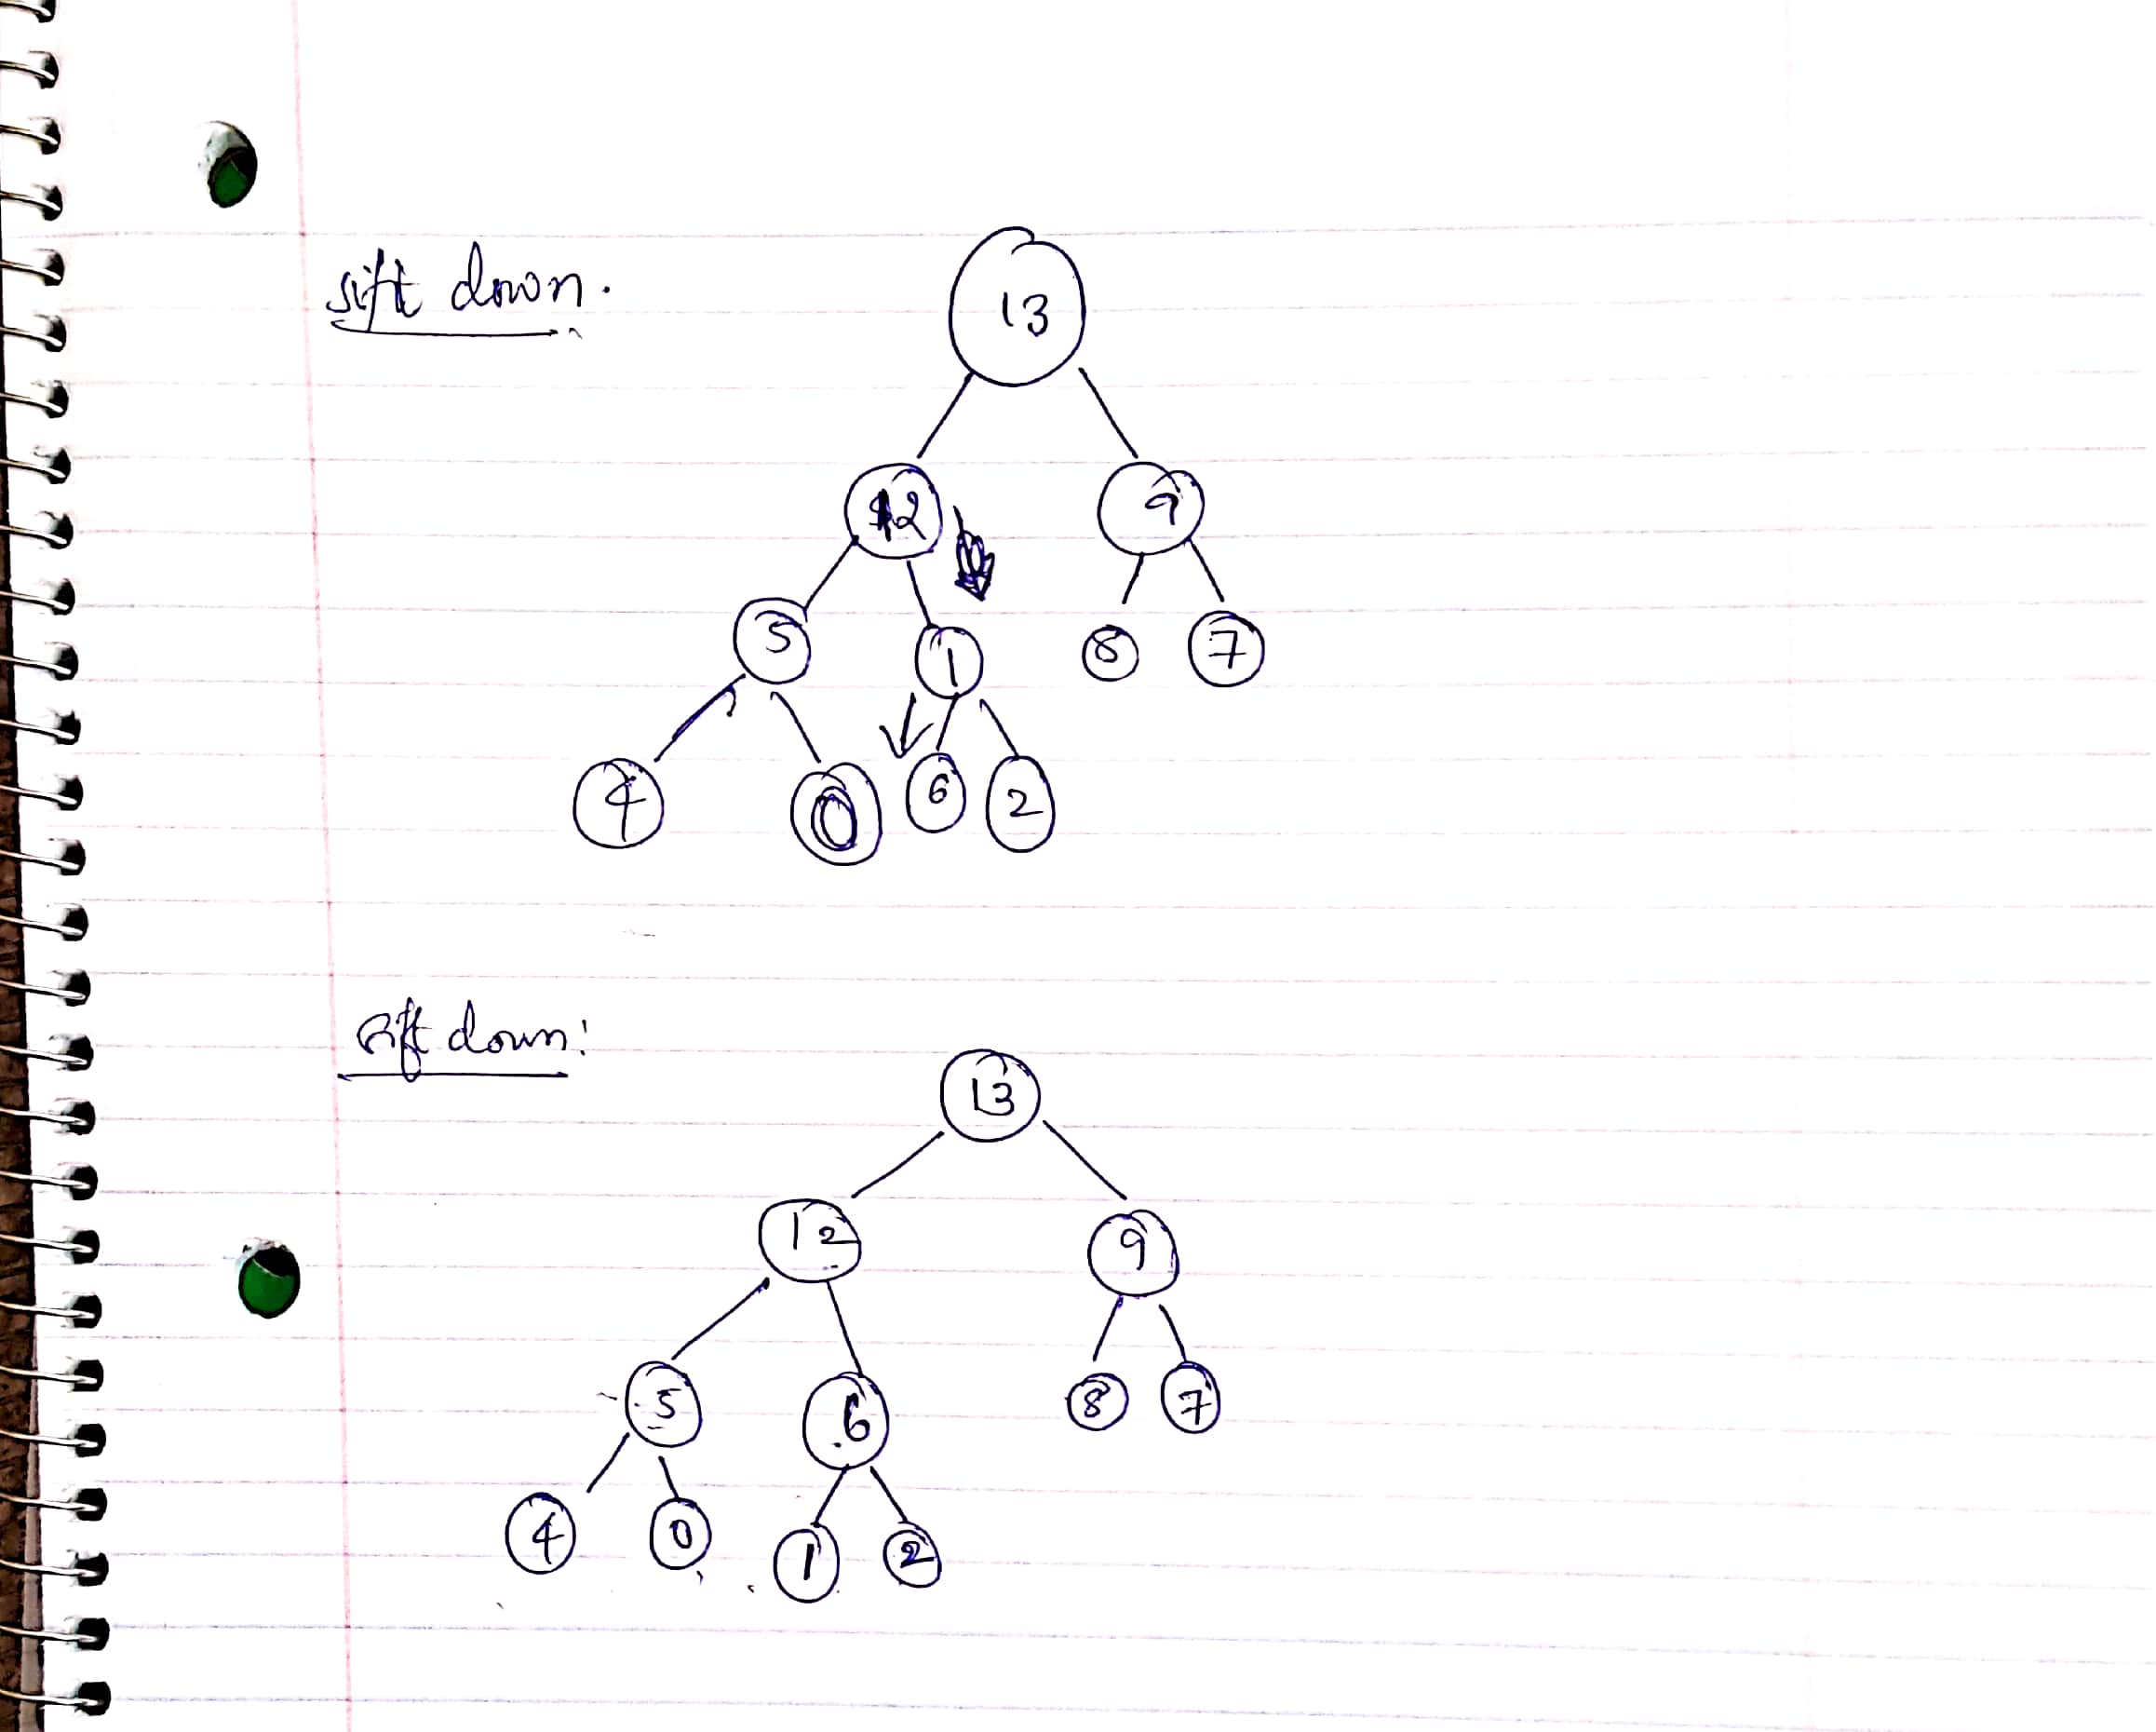 sift down.
13
12 9
5 1 8 7
4 0 6 2
sift down:
13
12 9
5 6 8 7
4 0 1 2